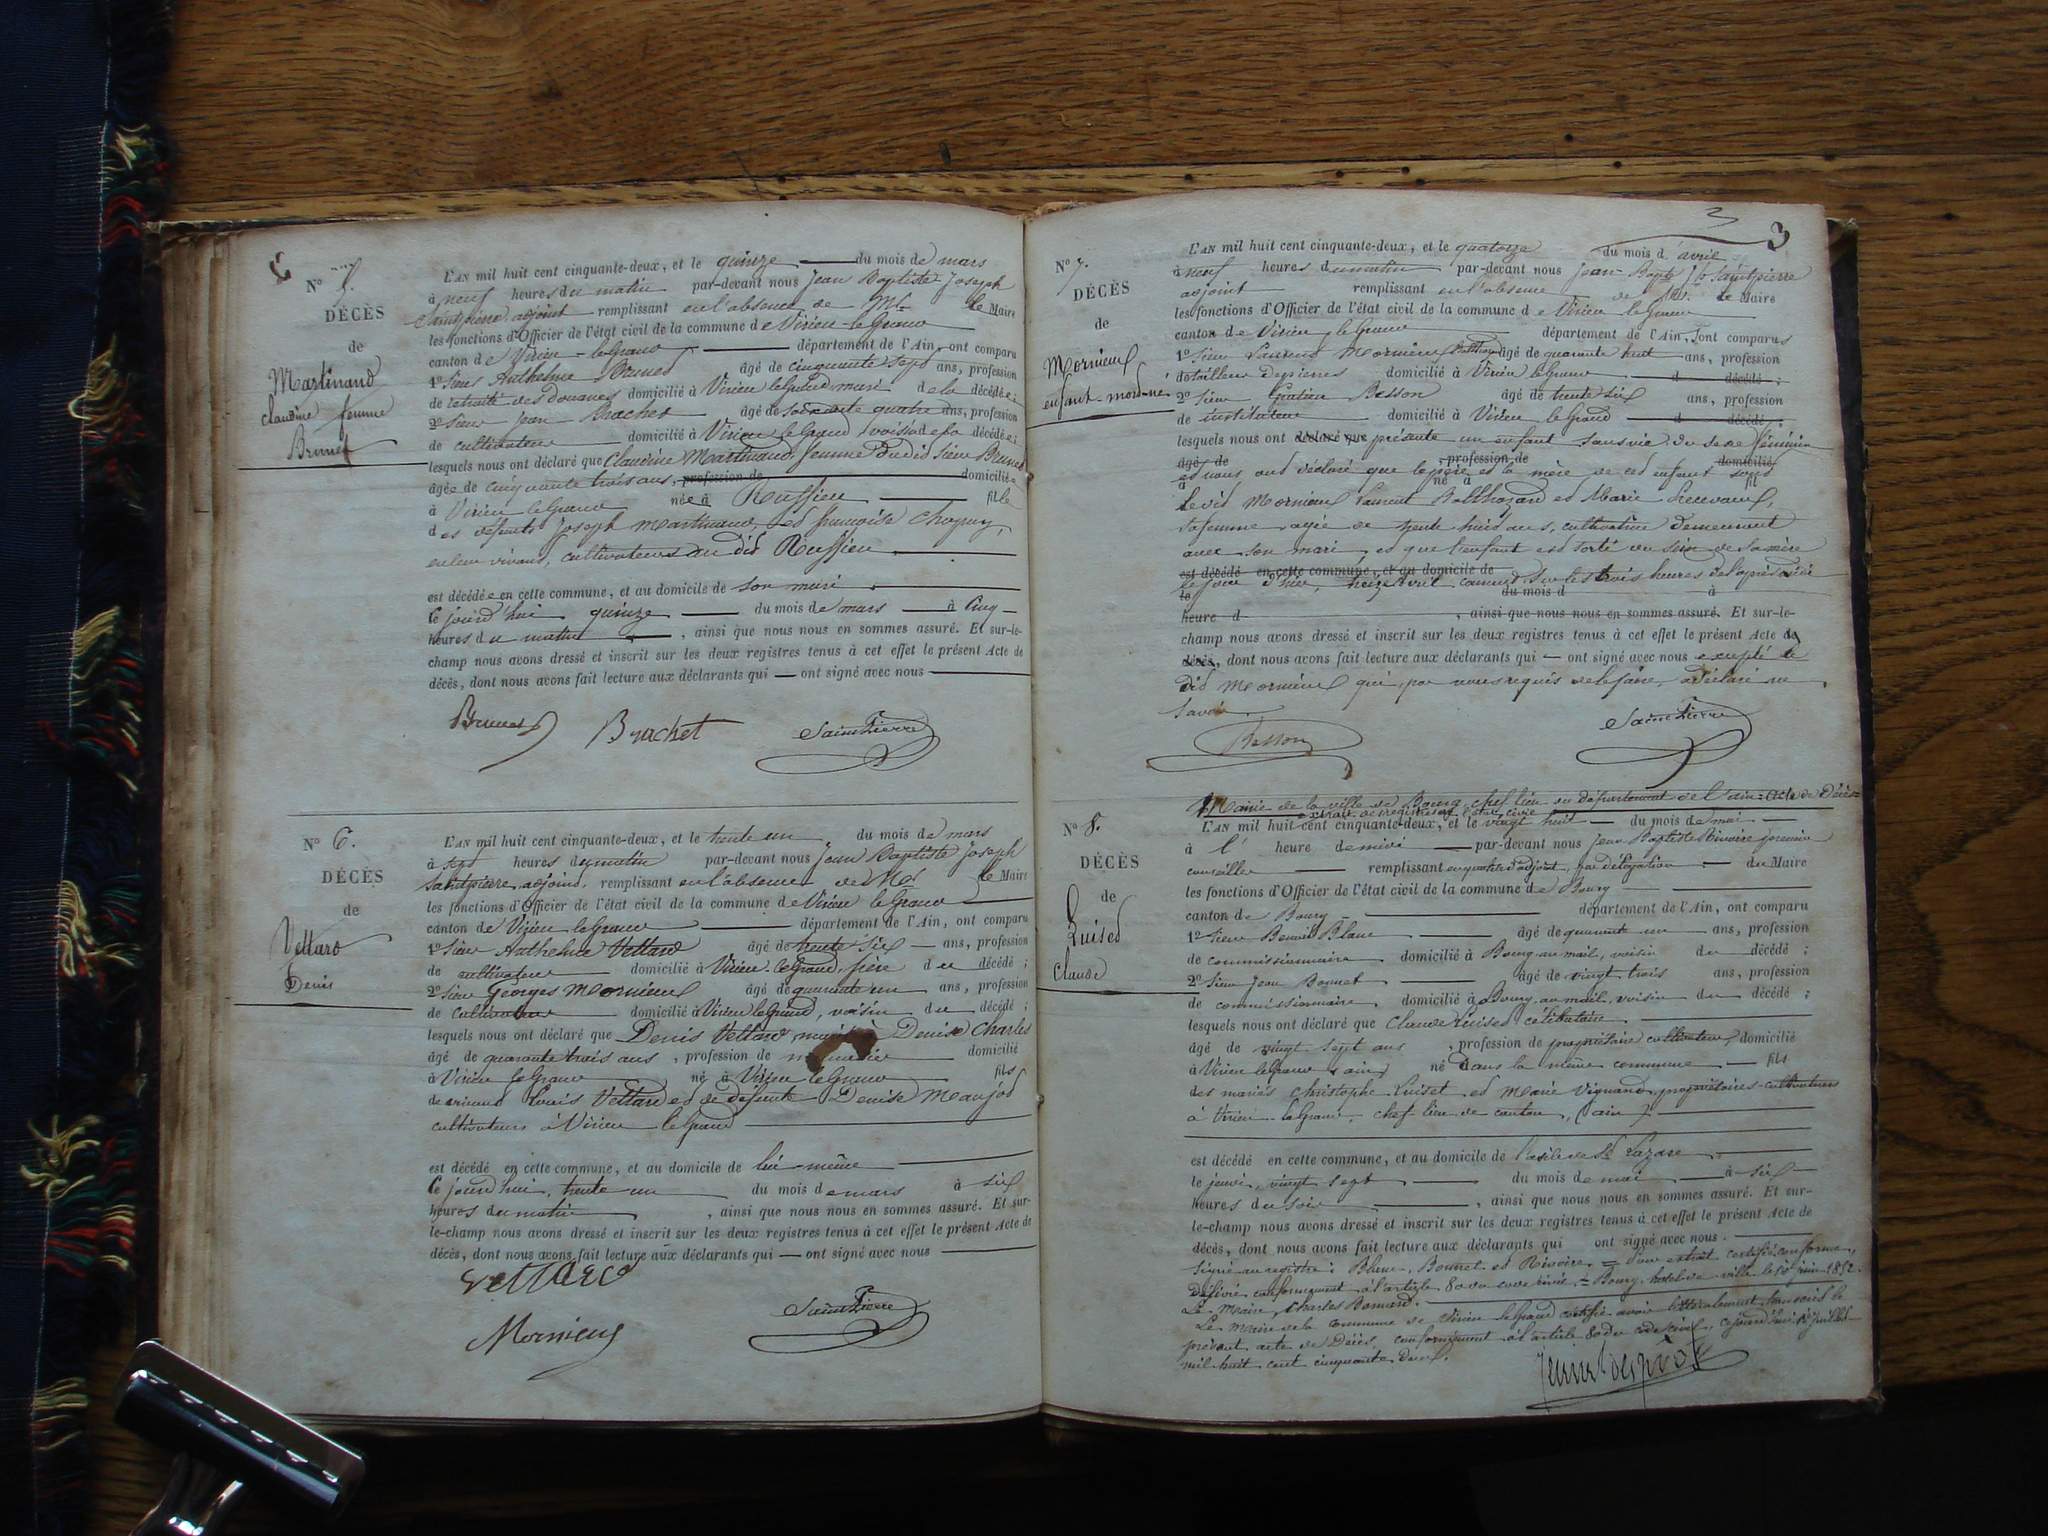 N° 5.
DÉCÈS
de
Martinand
Claudine femme
Brunet
L'AN mil huit cent cinquante-deux, et le quinze du mois de mars
à neuf heures du matin par-devant nous Jean Baptiste Joseph
Saintpierre adjoint remplissant en l'absence de Mr le Maire
les fonctions d'Officier de l'état civil de la commune de Virieu le Grand
canton de Virieu-le Grand département de l'Ain, ont comparu
1° Sieur Anthelme Brunet âgé de cinquante sept ans, profession
de retraité des douanes domicilié à Virieu le Grand, mari de la décédée;
2° Sieur Jean Brachet âgé de soixante quatre ans, profession
de cultivateur domicilié à Virieu le Grand voisin de la décédée;
lesquels nous ont déclaré que Claudine Martinand, femme du dit Sieur Brunet
âgée de cinquante trois ans, profession de domiciliée
à Virieu le Grand née à Ruffieu fille
des défunts Joseph Martinand, et françoise
en leur vivant, cultivateurs au dit Ruffieu
est décédée en cette commune, et au domicile de son mari
Ce jourd'hui quinze du mois de mars à cinq
heures du matin, ainsi que nous nous en sommes assuré. Et sur-le-
champ nous avons dressé et inscrit sur les deux registres tenus à cet effet le présent Acte de
décès, dont nous avons fait lecture aux déclarants qui ont signé avec nous
Brunet Brachet SaintPierre
N° 6.
DÉCÈS
de
Vettard
Denis
L'AN mil huit cent cinquante-deux, et le trente un du mois de mars
à sept heures du matin par-devant nous Jean Baptiste Joseph
Saintpierre, adjoint, remplissant en l'absence de Mr le Maire
les fonctions d'Officier de l'état civil de la commune de Virieu le Grand
canton de Virieu le Grand département de l'Ain, ont comparu
1° Sieur Anthelme Vettard âgé de trente six ans, profession
de cultivateur domicilié à Virieu le Grand, frère du décédé;
2° Sieur Georges Mornieux âgé de quarante un ans, profession
de cultivateur domicilié à Virieu le Grand, voisin du décédé;
lesquels nous ont déclaré que Denis Vettard, Denise Charles
âgé de quarante trois ans, profession de domicilié
à Virieu le Grand né à Virieu le Grand fils
de vivant Louis Vettard et de défunte Denise Maujod
cultivateurs à Virieu le Grand
est décédé en cette commune, et au domicile de lui-même
Ce jourd'hui, trente un du mois de mars à six
heures du matin, ainsi que nous nous en sommes assuré. Et sur-
le-champ nous avons dressé et inscrit sur les deux registres tenus à cet effet le présent Acte de
décès, dont nous avons fait lecture aux déclarants qui ont signé avec nous
Vettard
Mornieux SaintPierre
3
N° 7.
DÉCÈS
de
Mornieux
enfant-mort-né
L'AN mil huit cent cinquante-deux, et le quatorze du mois d'avril
à neuf heures du matin par-devant nous Jean-Bapte Jh Saintpierre
adjoint remplissant en l'absence de Mr. le Maire
les fonctions d'Officier de l'état civil de la commune de Virieu le Grand
canton de Virieu le Grand département de l'Ain, sont comparus
1° Sieur Laurent Mornieux Balthazard âgé de quarante huit ans, profession
de tailleur de pierres domicilié à Virieu le Grand d décédé;
2° Sieur Gratien Besson âgé de trente six ans, profession
de instituteur domicilié à Virieu le Grand d décédé;
lesquels nous ont déclaré que présenté un enfant sans vie, du sexe féminin
âgé de , profession de domicilié
et nous ont déclaré que le père et la mère de cet enfant sont
à né à fil
le dit Mornieux Laurent Balthazard et Marie
sa femme, agée de trente huit ans, cultivatrice demeurant
avec son mari, et que l'enfant est sorti du sein de sa mère
est décédé en cette commune, et au domicile de
le jour d'hier, treize avril courant, sur les trois heures de l'après midi
le du mois d à
heure d , ainsi que nous nous en sommes assuré. Et sur-le-
champ nous avons dressé et inscrit sur les deux registres tenus à cet effet le présent Acte de
décès, dont nous avons fait lecture aux déclarants qui ont signé avec nous excepté le
dit Mornieux qui, par nous requis de le faire, a déclaré ne
savoir.
Besson SaintPierre
Mairie de la ville de Bourg, chef lieu du département de l'ain. Acte de Décès
extrait des registres de l'état civil
N° 8.
DÉCÈS
de
Luiset
Claude
L'AN mil huit cent cinquante-deux, et le vingt huit du mois de mai
à l' heure de midi par-devant nous Jean Baptiste Rivoire premier
conseiller remplissant en qualité d'adjoint, par délégation du Maire
les fonctions d'Officier de l'état civil de la commune de Bourg
canton de Bourg département de l'Ain, ont comparu
1° Sieur Benoit Blanc âgé de quarante un ans, profession
de commissionnaire domicilié à Bourg, au mail, voisin du décédé;
2° Sieur Jean Bonnet âgé de vingt trois ans, profession
de commissionnaire, domicilié à Bourg, au mail, voisin du décédé;
lesquels nous ont déclaré que Claude Luiset célibataire
âgé de vingt sept ans, profession de propriétaire cultivateur domicilié
à Virieu le Grand (ain) né dans la même commune fils
des mariés Christophe Luiset et Marie Vignand, propriétaires-cultivateurs
à Virieu le Grand, chef lieu de canton, (ain)
est décédé en cette commune, et au domicile de l'asile de St Lazare
le jeudi, vingt sept du mois de mai à six
heures du soir, ainsi que nous nous en sommes assuré. Et sur-
le-champ nous avons dressé et inscrit sur les deux registres tenus à cet effet le présent Acte de
décès, dont nous avons fait lecture aux déclarants qui ont signé avec nous.
Signé au registre: Blanc, Bonnet et Rivoire. = Pour extrait certifié conforme,
délivré conformément à l'article 80 du code civil. = Bourg, hotel de ville le 10 juin 1852.
Le Maire, Charles Bonnard.
Le Maire de la commune de Virieu le Grand certifie avoir littéralement transcrit le
présent acte de Décès, conformément à l'article 80 du code civil, cejourd'hui juillet
mil huit cent cinquante deux.